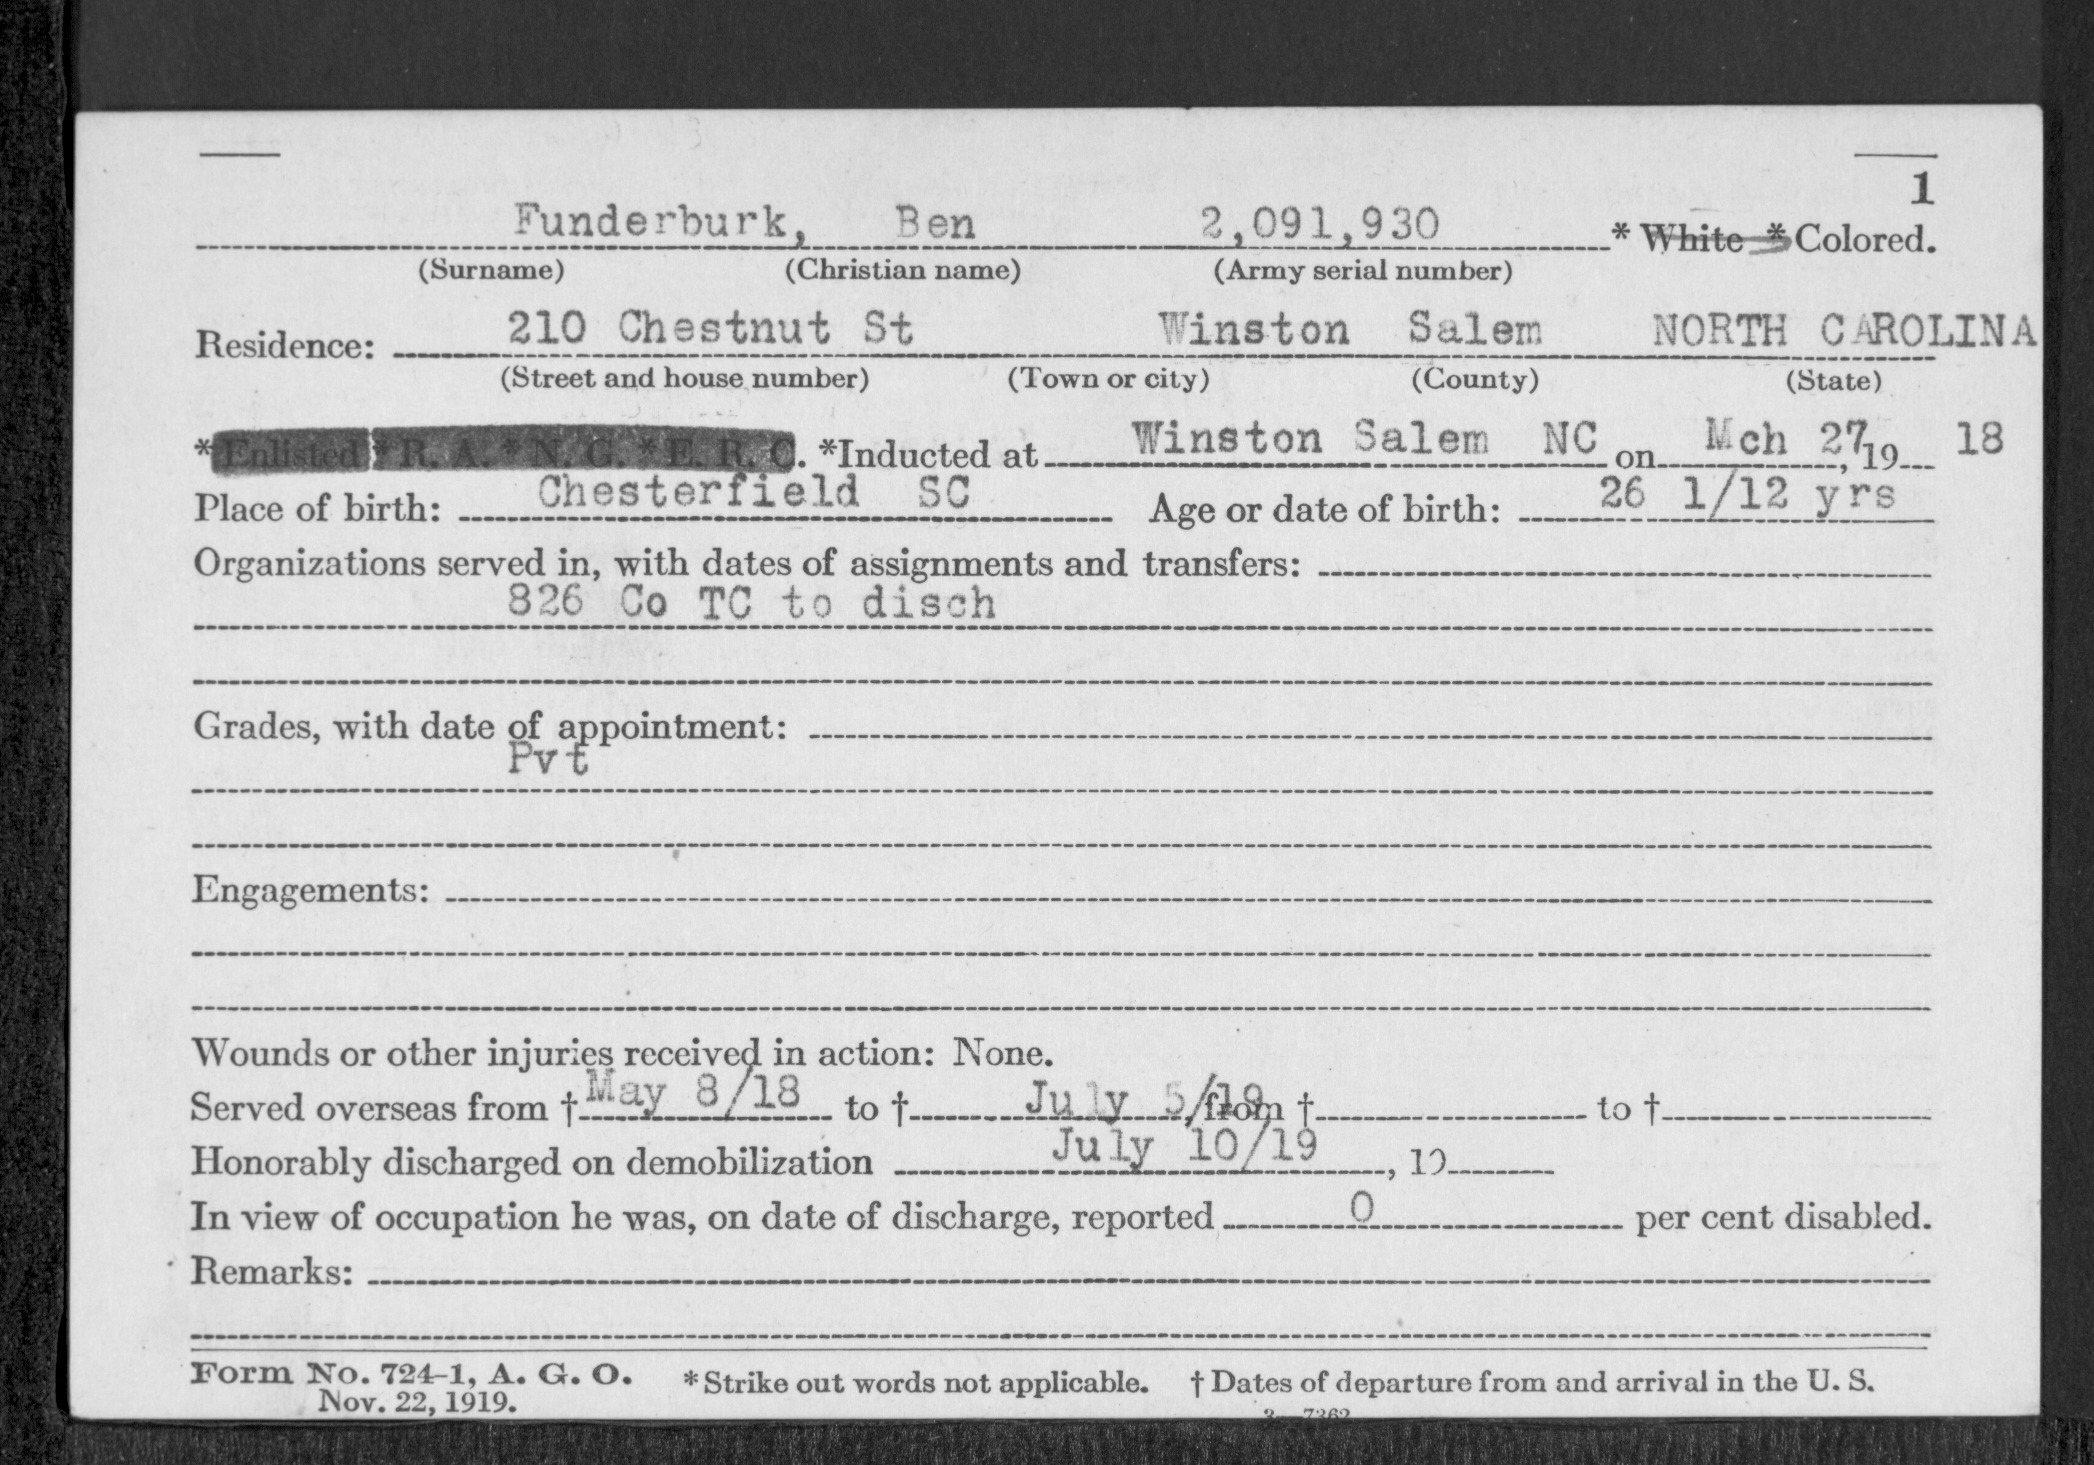 1
Funderburk, Ben 2,091,930 * White * Colored.
(Surname) (Christian name) (Army serial number)
Residence: 210 Chestnut St Winston Salem NORTH CAROLINA
(Street and house number) (Town or city) (County) (State)
*Enlisted * R. A. * N. G. * E. R. C. *Inducted at Winston Salem NC on Mch 27, 19 18
Place of birth: Chesterfield SC Age or date of birth: 26 1/12 yrs
Organizations served in, with dates of assignments and transfers:
826 Co TC to disch
Grades, with date of appointment:
Pvt
Engagements:
Wounds or other injuries received in action: None.
Served overseas from † May 8/18 to † July 5/19 from † to †
Honorably discharged on demobilization July 10/19, 19
In view of occupation he was, on date of discharge, reported 0 per cent disabled.
Remarks:
Form No. 724-1, A. G. O. * Strike out words not applicable. † Dates of departure from and arrival in the U. S.
Nov. 22, 1919.
3—7362